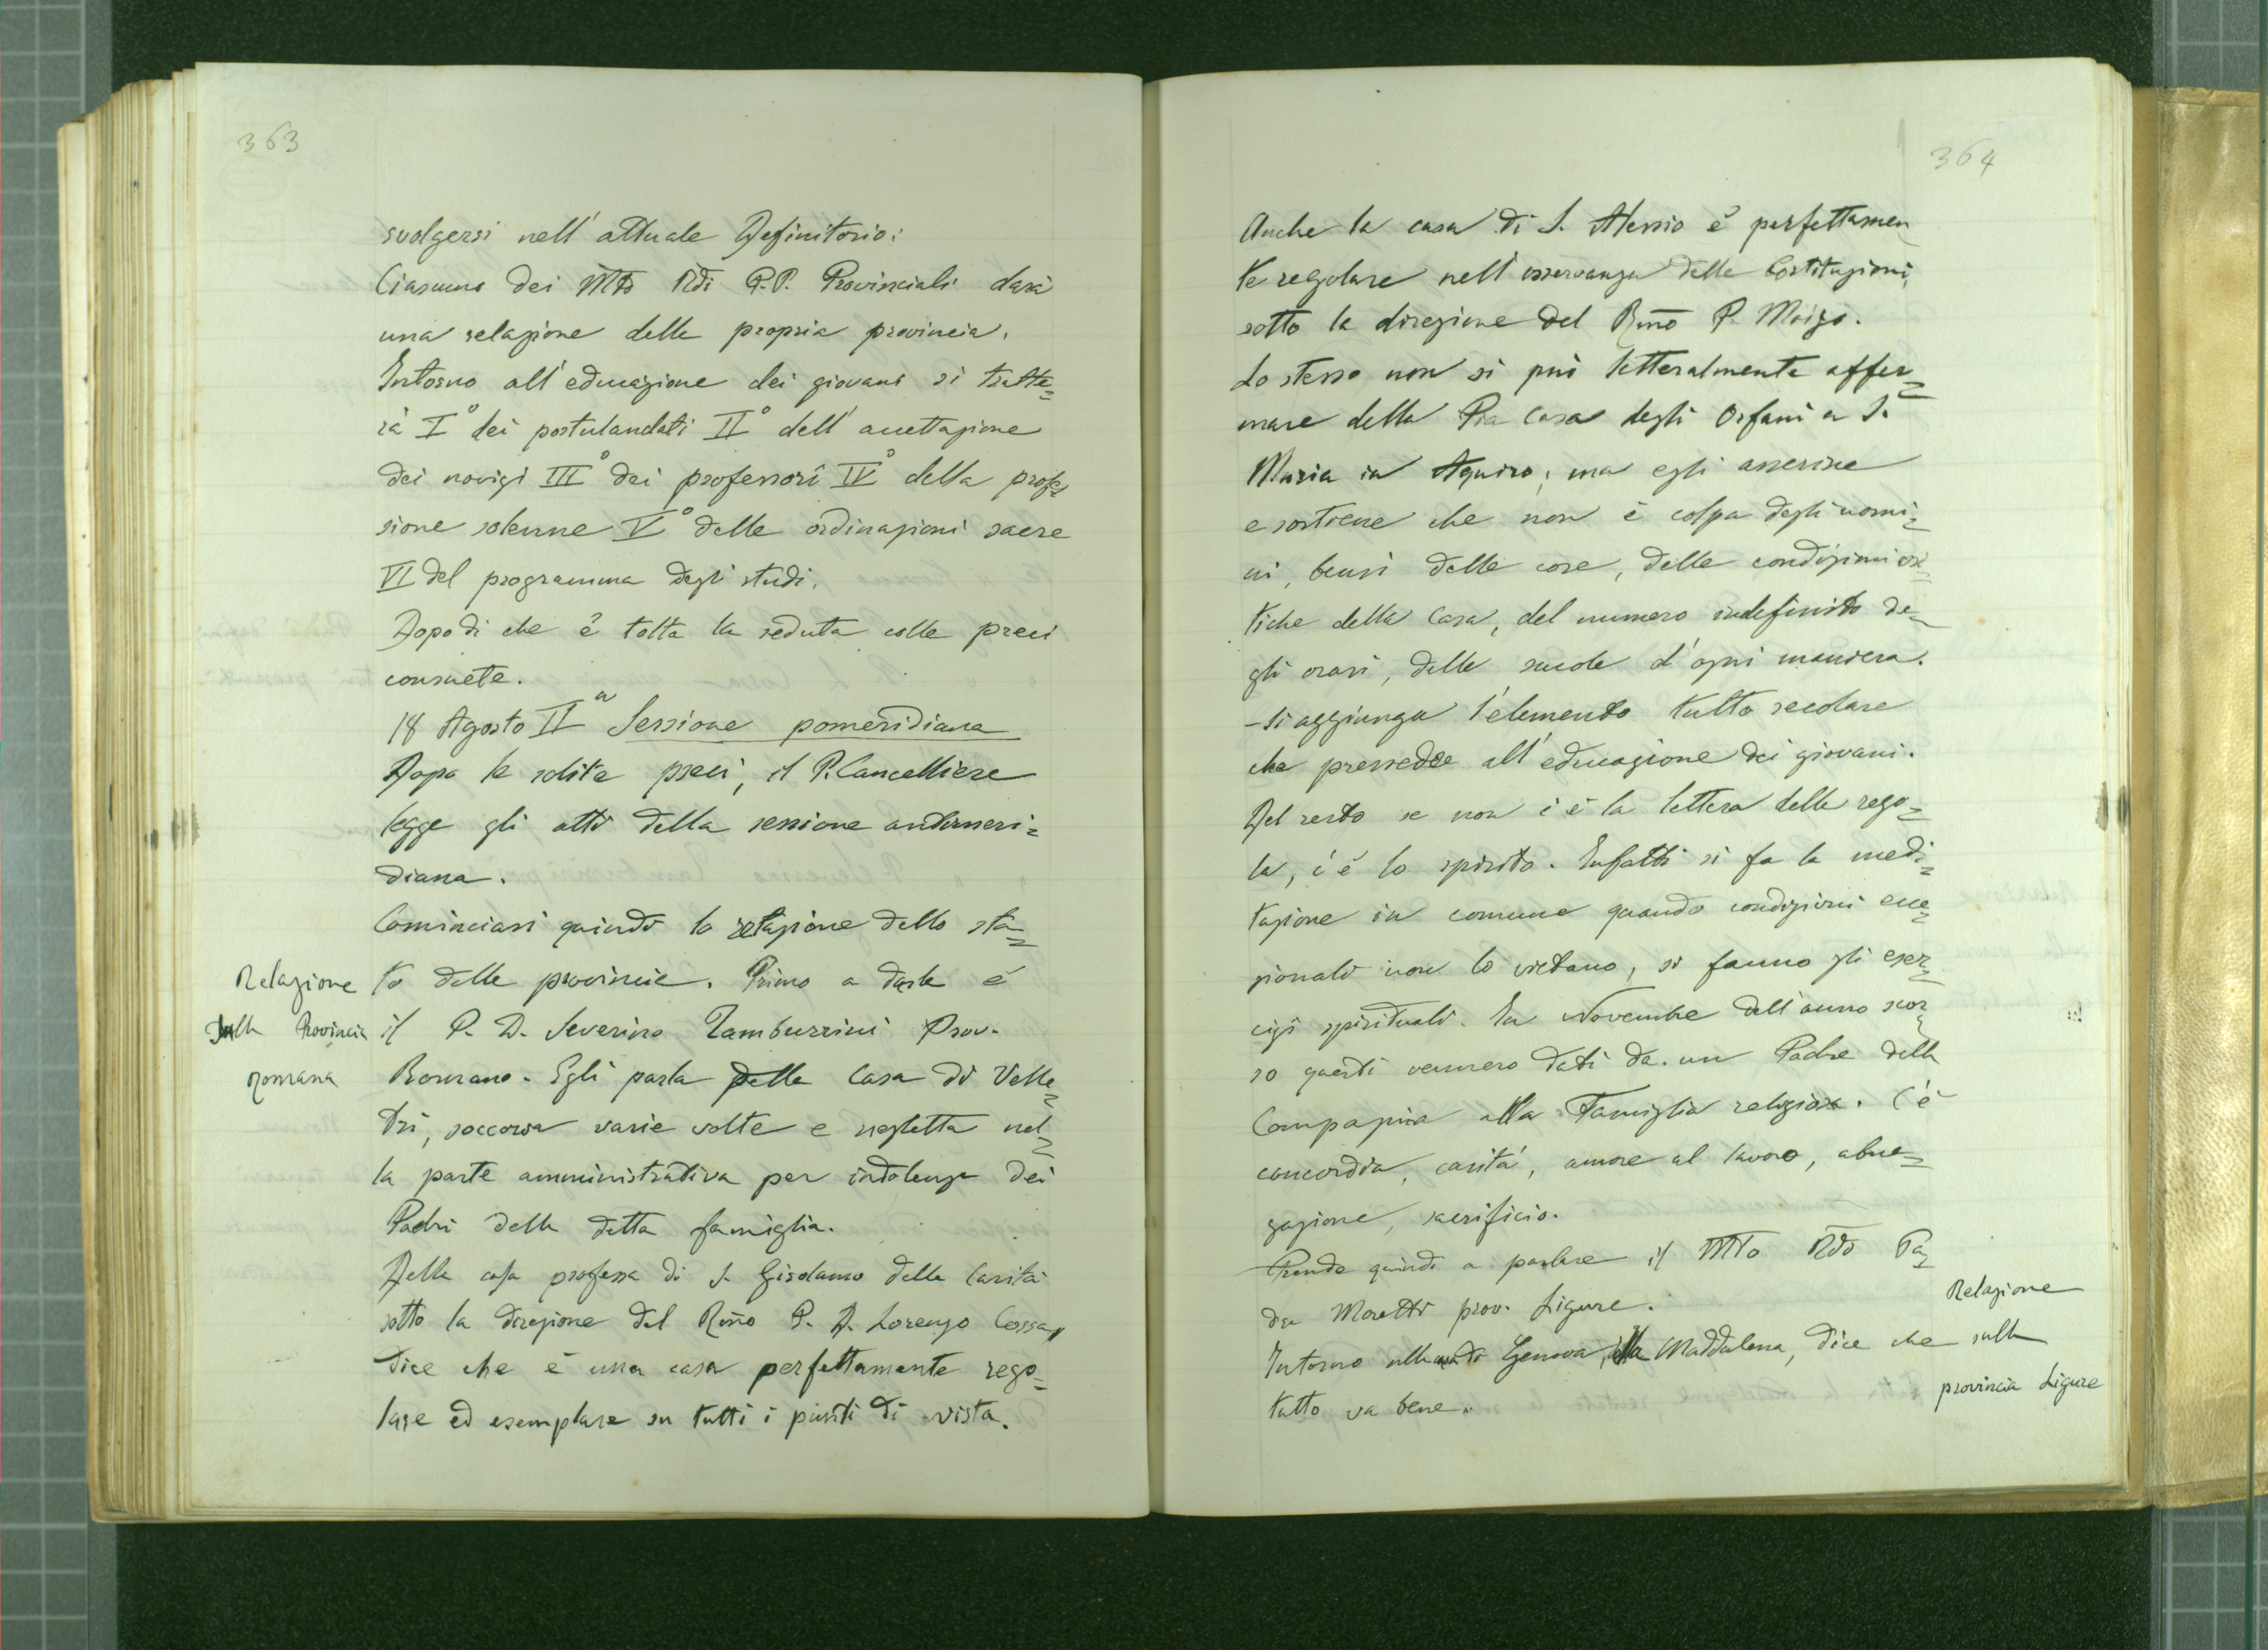 363
svolgersi nell'attuale Definitorio:
Ciascuno dei MTo Rdi P.P. Provinciali darà
una relazione della propria provincia.
Intorno all'educazione dei giovani si tratte=
rà I° dei postulandati II° dell'accettazione
dei novizi III° dei professori IV° della profes
sione solenne V° delle ordinazioni sacre
VI del programma degli studi.
Dopodi che è tolta la seduta colle preci
consuete.
18 Agosto IIa Sessione pomeridiana
Dopo le solite preci, il P. Cancelliere
legge gli atti della sessione antimeri=
diana.
Cominciasi quindi la relazione dello sta=
Relazione
sulla Provincia
Romana
to delle provincie. Primo a darla è
il P. D. Severino Tamburrini Prov.
Romano. Egli parla della Casa di Velle=
tri, soccorsa varie volte e negletta nel=
la parte amministrativa per indolenza dei
Padri della detta famiglia.
Della casa professa di S. Girolamo della Carità
sotto la direzione del Rmo P. D. Lorenzo Cossa,
dice che è una casa perfettamente rego=
lare ed esemplare su tutti i punti di vista.
364
Anche la casa di S. Alessio è perfettamen
te regolare nell'osservanza delle Costituzioni,
sotto la direzione del Rmo P. Moizo.
Lo stesso non si può letteralmente affer=
mare della Pia Casa degli Orfani a S.
Maria in Aquiro; ma egli asserisce
e sostiene che non è colpa degli uomi=
ni, bensì delle cose, delle condizioni
tiche della Casa, del numero indefinito de=
gli orari, delle scuole d'ogni maniera.
- Si aggiunga l'elemento tutto secolare
che pressedee all'educazione dei giovani.
Del resto se non c'è la lettera della rego=
la, c'è lo spirito. Infatti si fa la medi=
tazione in comune quando condizioni ecce=
zionali non lo vietano, si fanno gli eser=
cizi spirituali. In Novembre dell'anno scor=
so questi vennero dati da un Padre della
Compagnia alla Famiglia religiosa. C'è
concordia, carità, amore al lavoro, abne=
gazione, sacrificio.
Prende quindi a parlare il MTo Rdo Pa=
dre Moretti prov. Ligure.
Relazione
sulla
provincia Ligure
Intorno alla casa di Genova, alla Maddalena, dice che
tutto va bene.